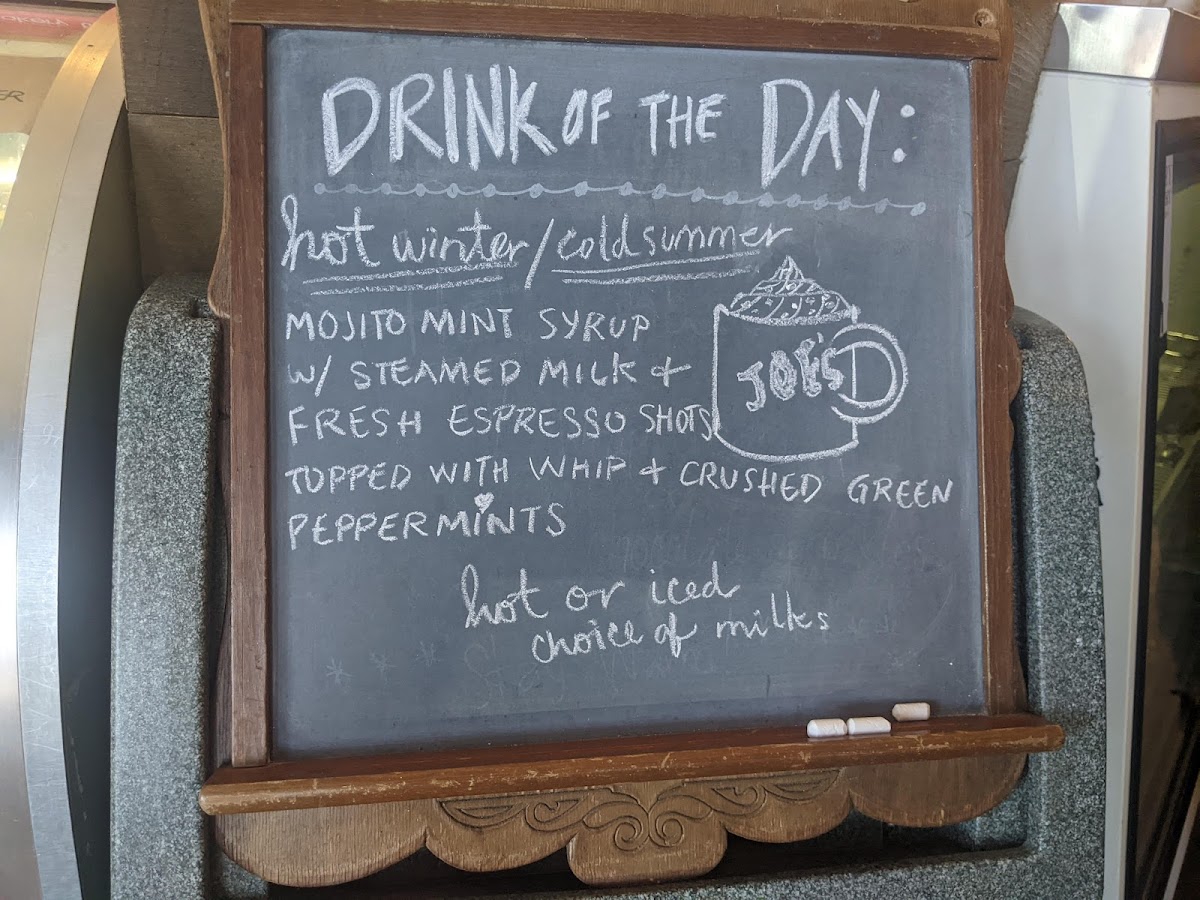 DRINK OF THE DAY:
hot winter/cold summer
MOJITO MINT SYRUP
W/ STEAMED MILK +
FRESH ESPRESSO SHOTS
TOPPED WITH WHIP + CRUSHED GREEN
PEPPERMINTS
JOE'S
hot or iced
choice of milks